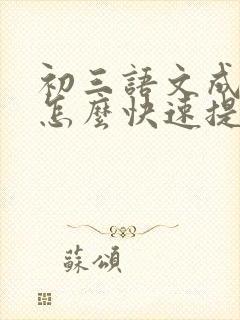 初三語文成
怎麼快速提
蘇頌